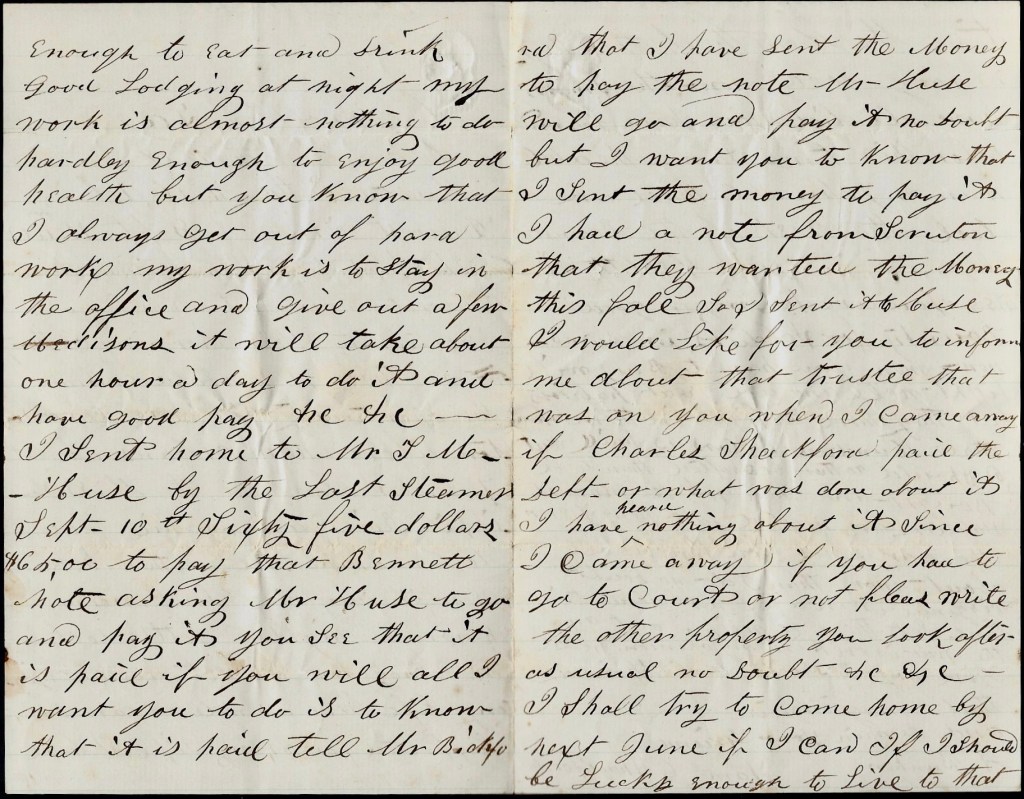 Enough to Eat and Drink
Good Lodging at night my
work is almost nothing to do
hardley Enough to Enjoy good
health but you Know that
I always get out of hard
work my work is to Stay in
the office and give out a few
it will take about
one hour a day to do it and
have good pay &c &c —
I Sent home to Mr T M —
- Huse by the Last Steamer
Sept - 10th Sixty five dollars -
$65,00 to pay that Bennett
note asking Mr Huse to go
and pay it you See that it
is paid if you will all I
want you to do is to Know
that it is paid tell Mr Bickfo
rd that I have Sent the Money
to pay the note Mr Huse
will go and pay it no Doubt
but I want you to Know that
I Sent the money to pay it
I had a note from Scruton
that they wanted the Money
this fall So I Sent it to Huse
I would Like for you to inform
me about that trustee that
was on you when I Came away
if Charles Shackford paid the
Debt - or what was done about it
I have heard nothing about it Since
I Came away if you had to
go to Court or not pleas write
the other property you Look after
as usual no Doubt &c &c —
I Shall try to Come home by
next June if I can If I Should
be Lucky Enough to Live to that